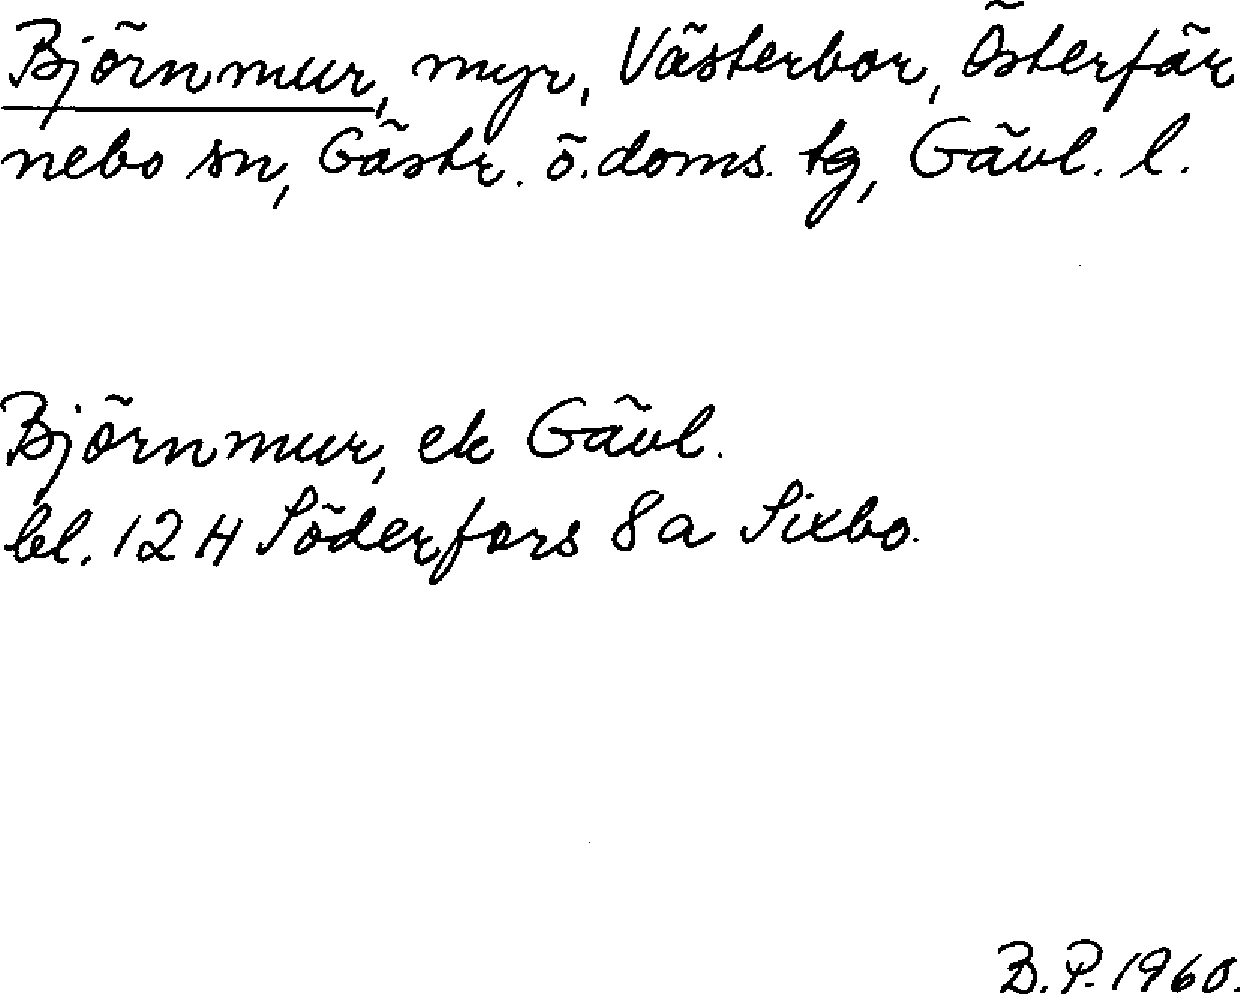 Björnmur, myr, Västerbor, Österfär
nebo sn, Gästr. ö. doms. tg, Gävl. l.
Björnmur, ek Gävl.
bl. 12 H Söderfors 8a Sixbo.
B.P. 1960.